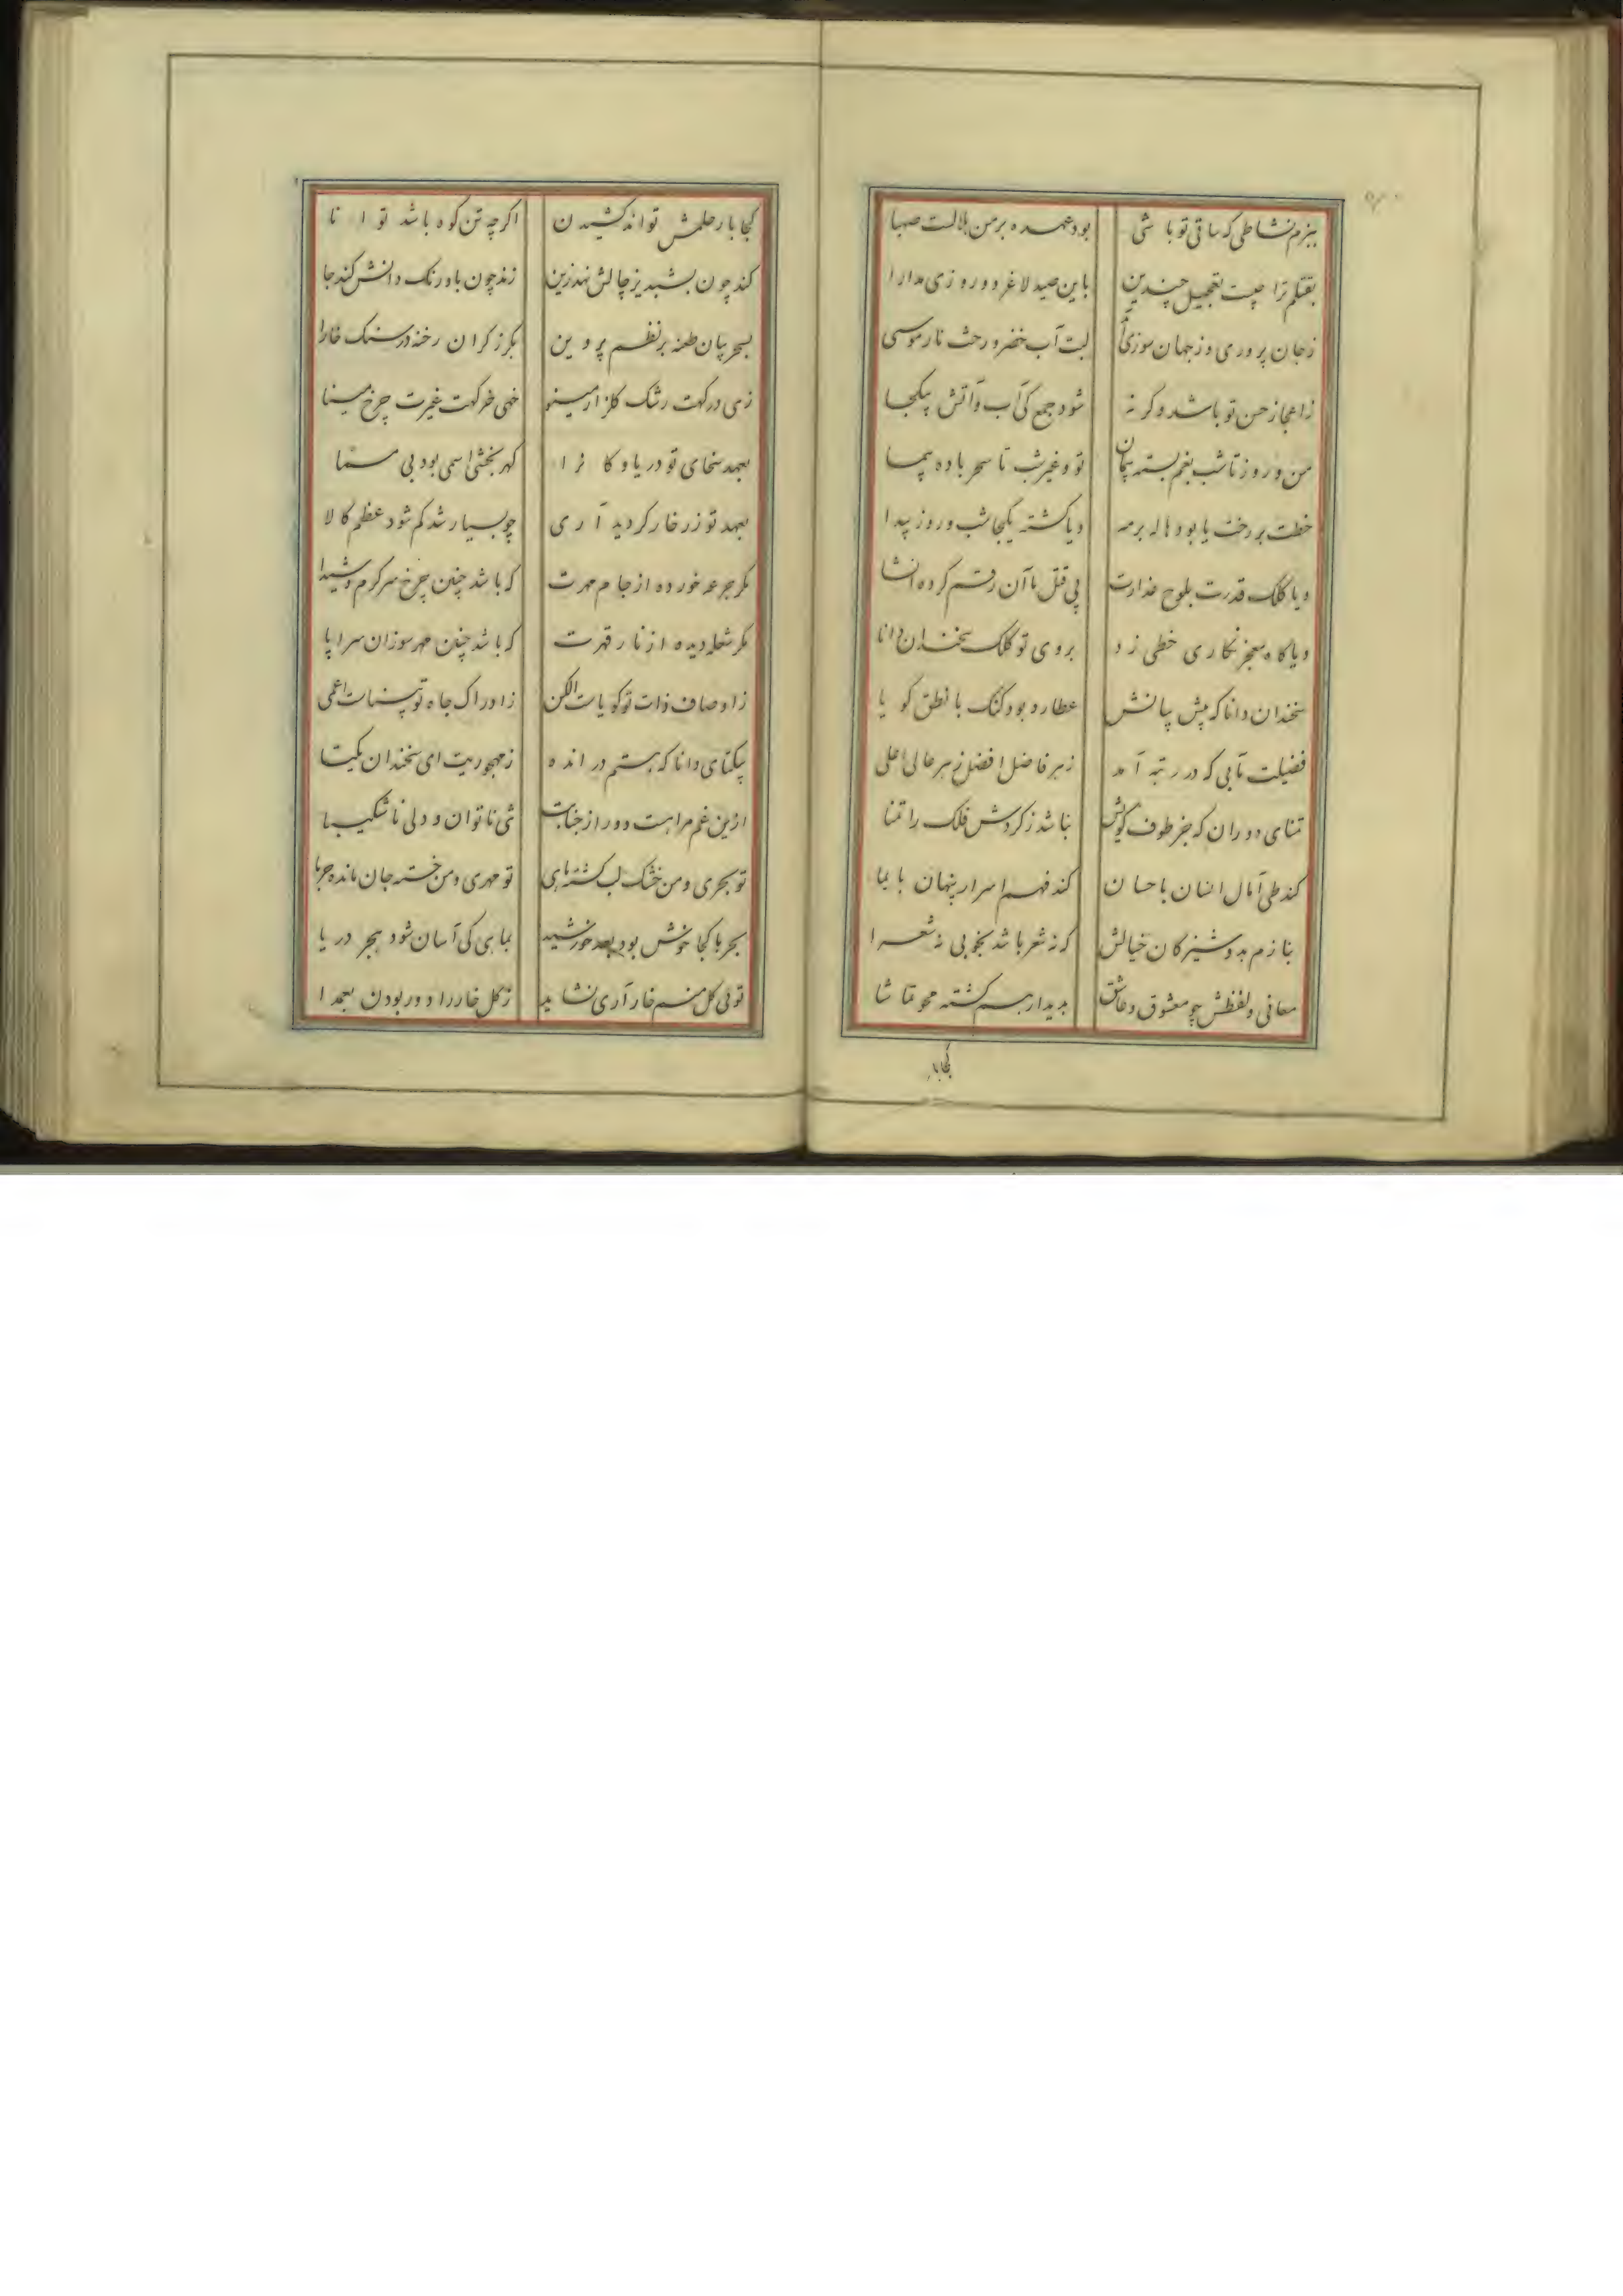 ببزم نشاطی که ساقی تو باشی بود عهده بر من بلالت صهبا
بقتلم ترا چیست تعجیل چندین باین صید لاغر دو روزی مدارا
ز جان پروری وز جهان سوزی لبت آب خضر و رخت نار موسی
ز اعجاز حسن تو باشد وکر نه شود جمع کی آب و آتش بیکجا
من و روز تا شب بغم بسته پیمان تو و غیر شب تا سحر باده پیما
خطت بر رخت یا بود هاله بر مه و یا کشته یکجا شب و روز پیدا
و یا کلک قدرت بلوح عذارت پی قتل ما آن رقم کرده انشا
و یا کاه معجز نکاری خطی زد بروی تو کلک سخندان دانا
سخندان دانا که پیش بیانش عطارد بود کنک با نطق کویا
فضیلت مآبی که در رتبه آمد ز هر فاضل افضل ز هر عالی اعلی
تمنای دوران که جز طوف کویش نباشد ز کردش فلک را تمنا
کند طی آمال انسان باحسان کند فهم اسرار پنهان بایما
بنازم بدوشیزکان خیالش که نه شعر باشد بخوبی نه شعرا
معانی و لفظش چو معشوق و عاشق بدیدار هم کشته محو تماشا
کجا بار
کجا بار حلمش تواند کشیدن اکر چه تن کوه باشد توانا
کند چون بشبدیز چالش نهد زین زند چون باورنک دانش کند جا
بسحر بیان طعنه بر نظم پروین بکرز کران رخنه در سنک خارا
زهی درکهت رشک کلزار مینو خهی خرکهت غیرت چرخ مینا
بعهد سخای تو دریا و کانرا کهر بخشی اسمی بود بی مسما
بعهد تو زر خار کردید آری چو بسیار شد کم شود عظم کالا
مکر جرعه خورده از جام مهرت که باشد چنین چرخ سرکرم و شیدا
مکر شعله دیده از نار قهرت که باشد چنین مهر سوزان سراپا
ز اوصاف ذات تو کویاست الکن ز ادراک جاه تو بیناست اعمی
بیکتای دانا که هستم در انده ز مهجوریت ای سخندان یکتا
ازین غم مراهست دور از جنابت تنی ناتوان و دلی ناشکیبا
تو بحری و من خشک لب کشته ماهی تو مهری و من خسته جان مانده حربا
بحربا کجا خوش بود بعد خورشید بماهی کی آسان شود هجر دریا
تویی کل منم خار آری نشاید ز کل خار را دور بودن بعمدا